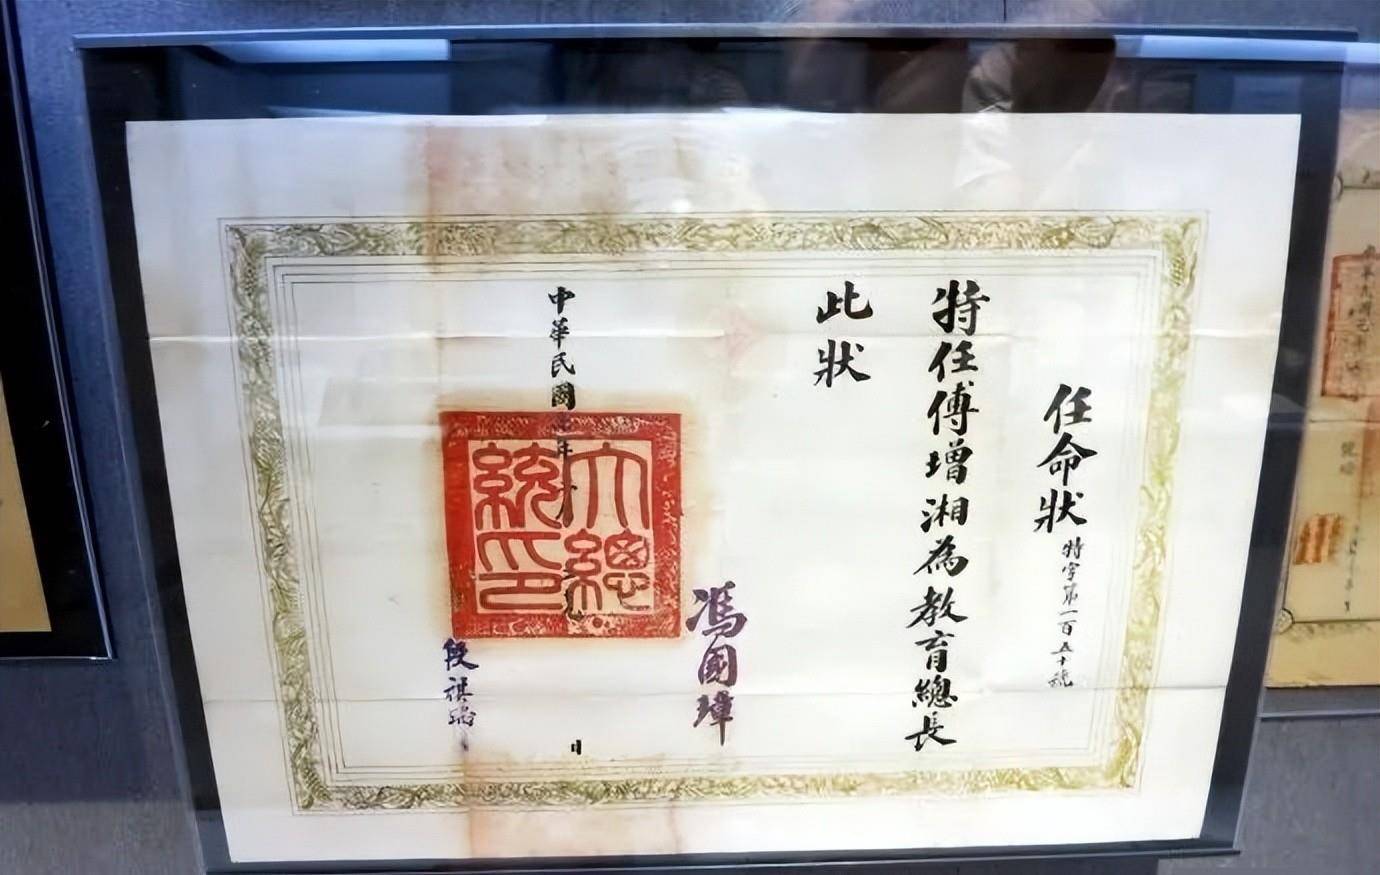 任命狀
特字第一百五十號
特任傅增湘為教育總長
此狀
馮國璋
大總統印
中華民國七年
日
段祺瑞